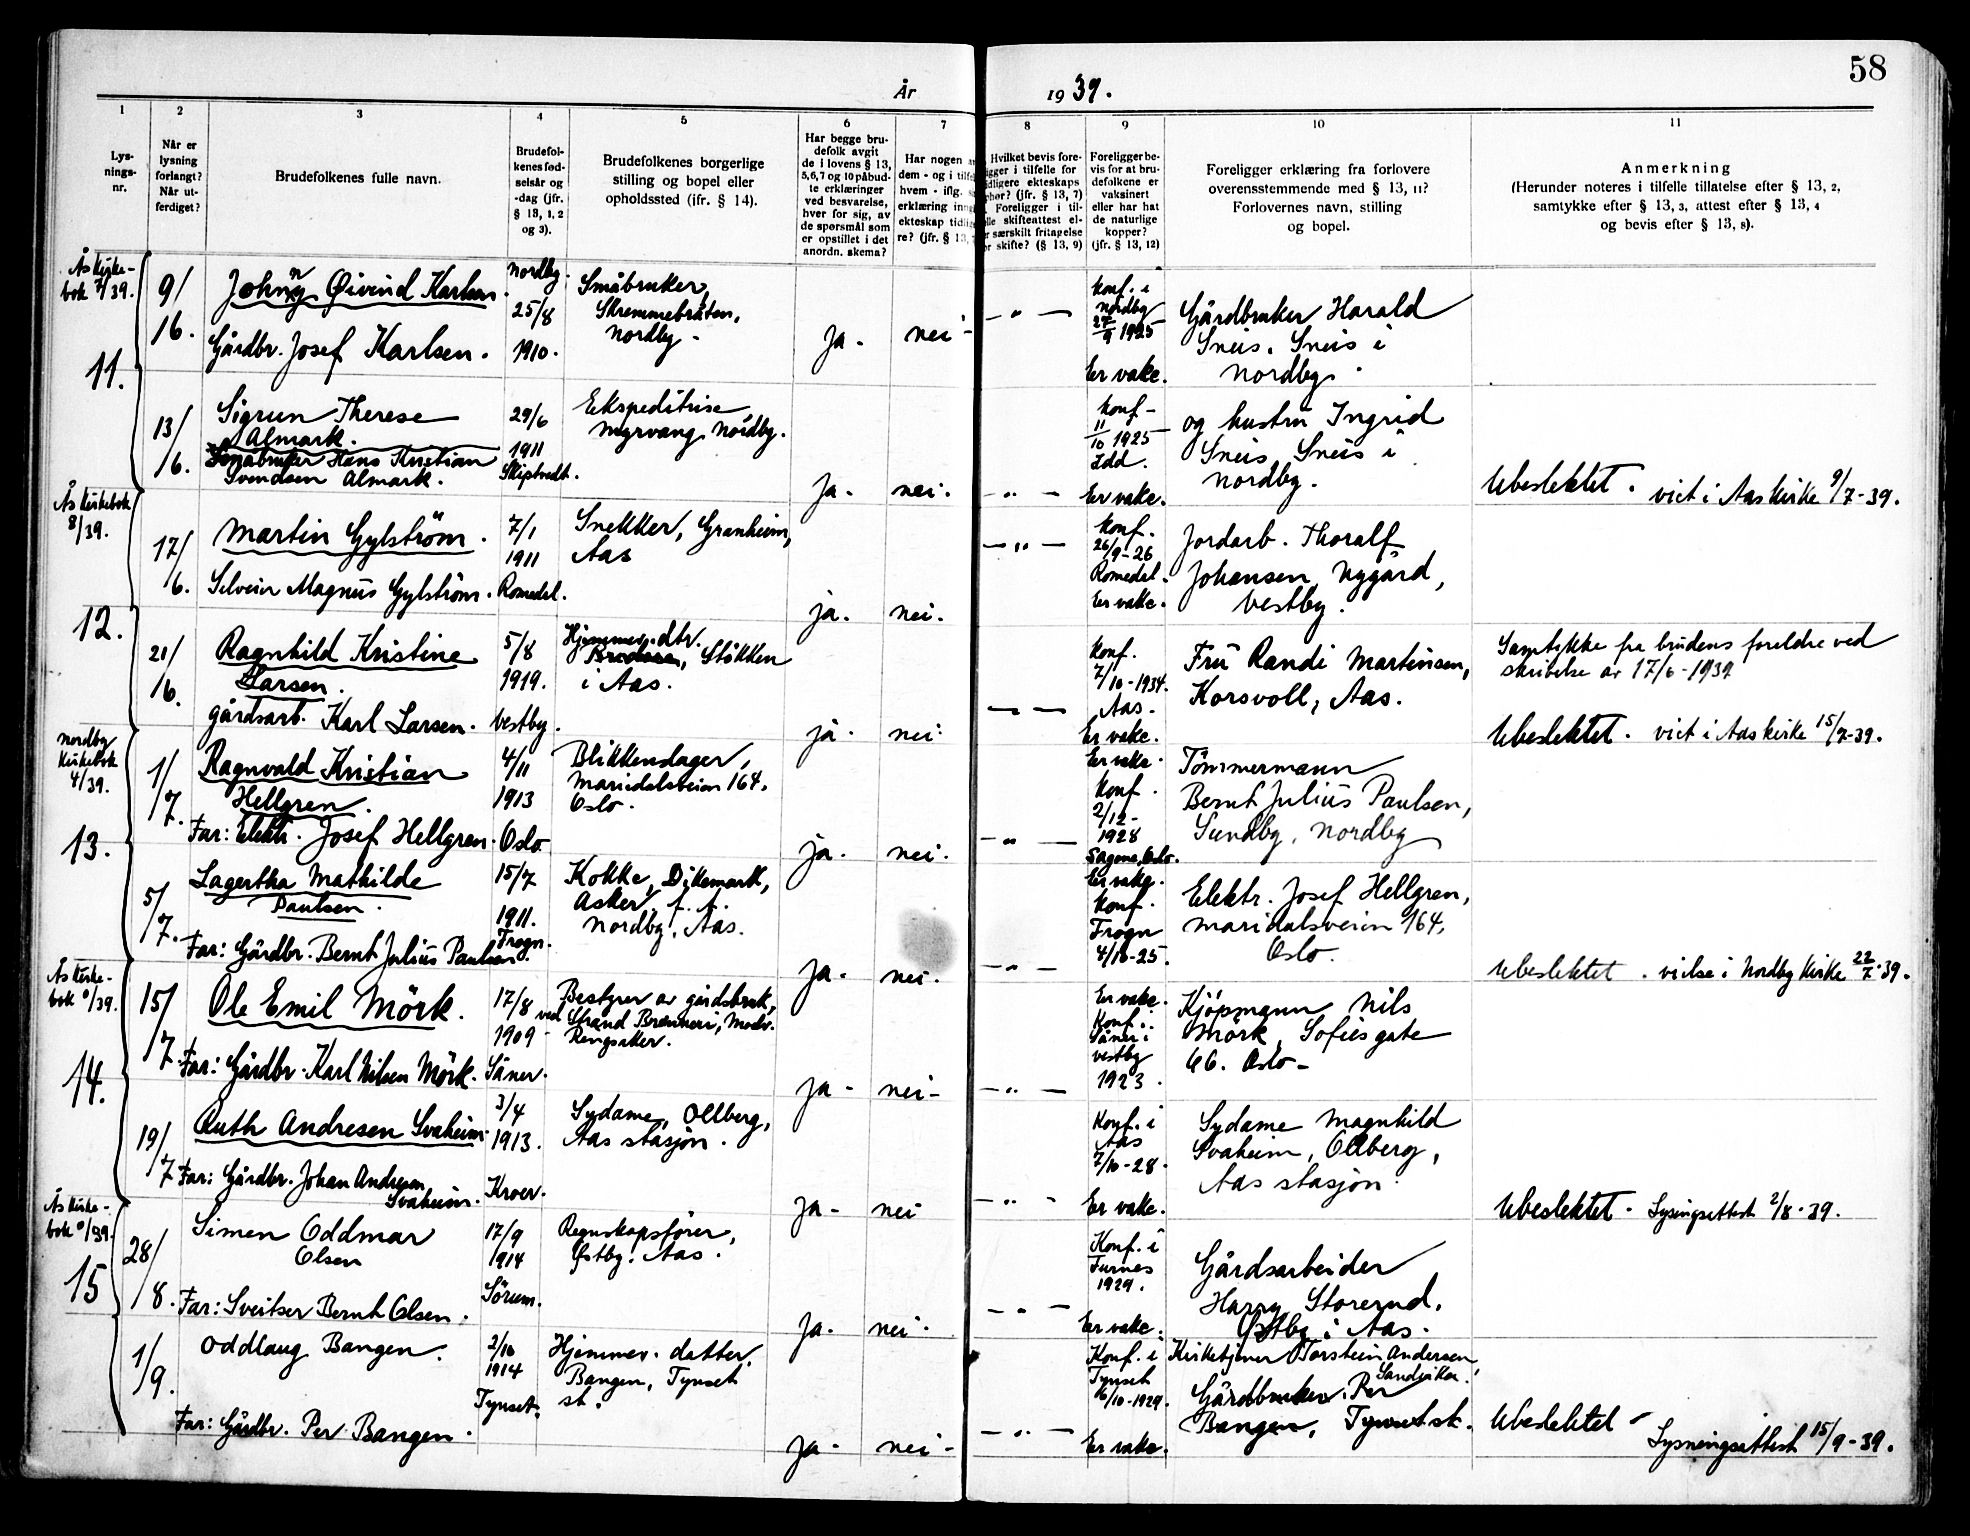 58
År 1939.
1 2 3 4 5 6 7 8 9 10 11
Lys-
nings-
nr.
Når er
lysning
forlangt?
Når ut-
ferdiget?
Brudefolkenes fulle navn.
Brudefol-
kenes fød-
selsår og
-dag (jfr.
§ 13, 1, 2
og 3).
Brudefolkenes borgerlige
stilling og bopel eller
opholdssted (ifr. § 14).
Har begge bru-
defolk avgit
de i lovens § 13,
5,6,7 og 10 påbud-
te erklæringer
ved besvarelse,
hver for sig, av
de spørsmål som
er opstillet i det
anordn. skema?
Har nogen
dem - og i
hvem - iflg.
erklæring
ekteskap
re? (jfr. § 13,
Hvilket bevis fore-
ligger i tilfelle for
tidligere ekteskaps
(jfr. § 13, 7)
Foreligger i til-
felle skifteattest el-
særskilt fritagelse
skifte? (§ 13, 9)
Foreligger be-
vis for at bru-
defolkene er
vaksinert
eller har hat
de naturlige
kopper?
(jfr. § 13, 12)
Foreligger erklæring fra forlovere
overensstemmende med § 13, 11?
Forlovernes navn, stilling
og bopel.
Anmerkning
(Herunder noteres i tilfelle tillatelse efter § 13, 2,
samtykke efter § 13, 3, attest efter § 13, 4
og bevis efter § 13, 8).
Ås Kirke-
bok 7/39.
11.
9/
16.
Johnny Øivind Karlsen
Gårdbr. Josef Karlsen.
Nordby.
25/8
1910.
Småbruker,
Skremmebråten,
Nordby.
ja. nei -
— " —
Konf. i
Nordby
27/9 1925
Er vake.
Gårdbruker Harald
Sneis. Sneis i
Nordby.
13/
6.
Sigrun Therese
Almark.
Småbruker Hans Kristian
Svendsen Almark.
29/6
1911
Skiptvedt.
Ekspeditrise
Myrvang Nordby.
ja. nei.
— " —
Konf -
11/10 1925
Idd.
Er vake.
og hustru Ingrid
Sneis Sneis i
Nordby.
Ubeslektet. viet i Aas Kirke 9/7-39.
Ås Kirkebok
8/39.
12.
17/
6.
Martin Gylstrøm.
Magnus Gylstrøm.
7/1
1911
Romedal.
Snekker, Granheim,
Aas
ja. nei.
— " —
Konf.
26/9-26
Romedal.
Er vake.
Jordarb. Thoralf
Johansen, Nygård,
Vestby.
21/
6.
Ragnhild Kristine
Larsen.
gårdsarb. Karl Larsen.
5/8
1919.
Vestby.
Hjemmev. dtr.
Stökken
i Aas.
ja. nei.
— —
Konf.
7/10-1934.
Aas.
Er vake.
Fru Randi Martinsen,
Korsvoll, Aas.
Samtykke fra brudens foreldre ved
skrivelse av 17/6-1939
Ubeslektet. viet i Aas Kirke 15/7-39.
Nordby
Kirkebok
4/39.
13.
1/
7.
Ragnvald Kristian
Hellgren.
Far: Elektr. Josef Hellgren.
4/11
1913
Oslo
Blikkenslager,
Maridalsveien 164.
Oslo.
ja. nei.
— " —
Er vake.
Konf.
2/12-
1928
Sagene, Oslo.
Tömmermann
Bernt Julius Paulsen,
Sundby, Nordby
5/
7.
Lagertha Mathilde
Paulsen.
Far: Gårdbr. Bernt Julius Paulsen.
15/7
1911.
Frogn.
Kokke, Dikemark,
Asker f. f.
Nordby, Aas.
ja. nei.
— " —
Er vake.
Konf.
Frogn
4/10-25.
Elektr. Josef Hellgren,
Maridalsveien 164,
Oslo.
Ubeslektet. vielse i Nordby Kirke 22/7-39.
Ås Kirke-
14.
15/
7.
Ole Emil Mörk.
Far: Gårdbr. Karl Nilsen Mörk.
17/8
1909
Såner.
Bestyrer av gårdsbruk,
ved Strand Brenneri, Moelv.
Ringsaker.
ja - nei -
— " —
Er vake.
Konf. i
Såner i
Vestby
1923.
Kjøpmann Nils
Mörk, Sofiesgate
66. Oslo -
19/
7
Ruth Andresen Svaheim
Far: Gårdbr. Johan Andresen
Svaheim.
3/4
1913.
Kroer.
Sydame, Ollberg,
Aas stasjon.
ja - nei
— " —
Konf. i
Aas
7/10-28.
Er vake.
Sydame Magnhild
Svaheim, Ollberg,
Aas stasjon.
Ubeslektet. Lysingsattest 2/8-39.
Ås Kirke-
15
28/
8.
Simen Oddmar
Olsen
Far: Sveitser Bernt Olsen.
17/9
1914
Sörum.
Regnskapsfører,
Østby, Aas.
ja. nei.
— " —
Konf. i
Furnes
1929.
Er vake.
Gårdsarbeider
Harry Storerud,
Østby i Aas.
1/
9.
Oddlaug Bangen.
Far: Gårdbr. Per Bangen.
2/10
1914
Tynset.
Hjemmev. datter,
Bangen, Tynset
st.
ja. nei -
— " —
Konf. i
Tynset
16/10-1929.
Er vake.
Kirketjener Torstein Andersen,
Sandvika.
Gårdbruker Per
Bangen, Tynset st.
Ubeslektet -
Lysningsattest 15/9-39.